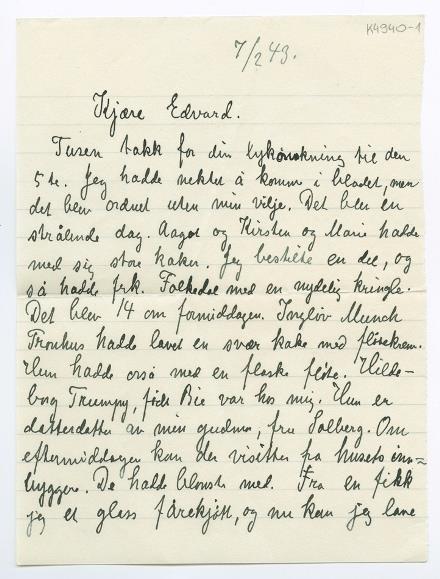 K4940-1
7/2 43.
Kjære Edvard.
Tusen takk for din lykønskning til den
5te. Jeg hadde nektet å komme i bladet, men
det blev ordnet uten min vilje. Det blev en
strålende dag. Aagot og Kirsten og Marie hadde
med sig store kaker. Jeg bestilte en del, og
så hadde frk. Folkedal med en nydelig kringle.
Det blev 14 om formiddagen. Ingløv Munch
Tronhus hadde lavet en svær kake med fløtekrem.
Hun hadde også med en flaske fløte. Hilde-
borg Trumpy, født Bie var hos mig. Hun er
datterdatter av min gudmor, fru Solberg. Om
eftermiddagen kom der visitter fra husets inn=
byggere. De hadde blomster med. Fra en fikk
jeg et glass fårekjøtt, og nu kan jeg lave